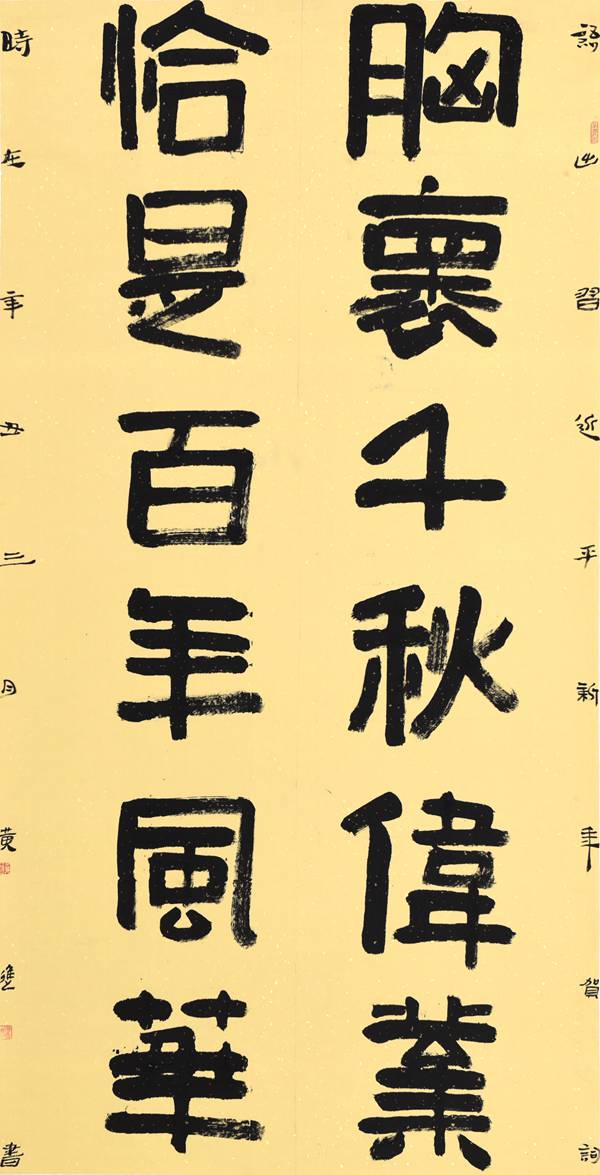 語出習近平新年賀詞
胸褱千秋偉業
恰是百年風華
時在辛丑三月黃進書